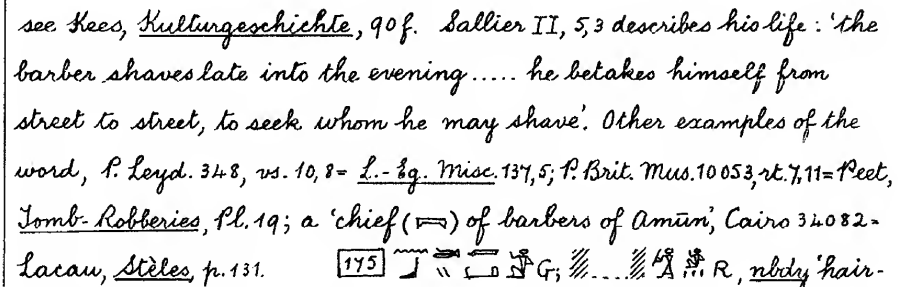 see Kees, Kulturgeschichte, 90 f. Sallier II, 5,3 describes his life : 'the
barber shaves late into the evening ..... he betakes himself from
street to street, to seek whom he may shave'. Other examples of the
word, P. Leyd. 348, vs. 10, 8 = L.-Eg. Misc. 137, 5; P. Brit. Mus. 10053, rt. 7, 11 = Peet,
Tomb-Robberies, Pl. 19; a 'chief () of barbers of Amūn', Cairo 34082 =
Lacau, Stèles, p. 131. 175 G; .... R, nbdy 'hair-